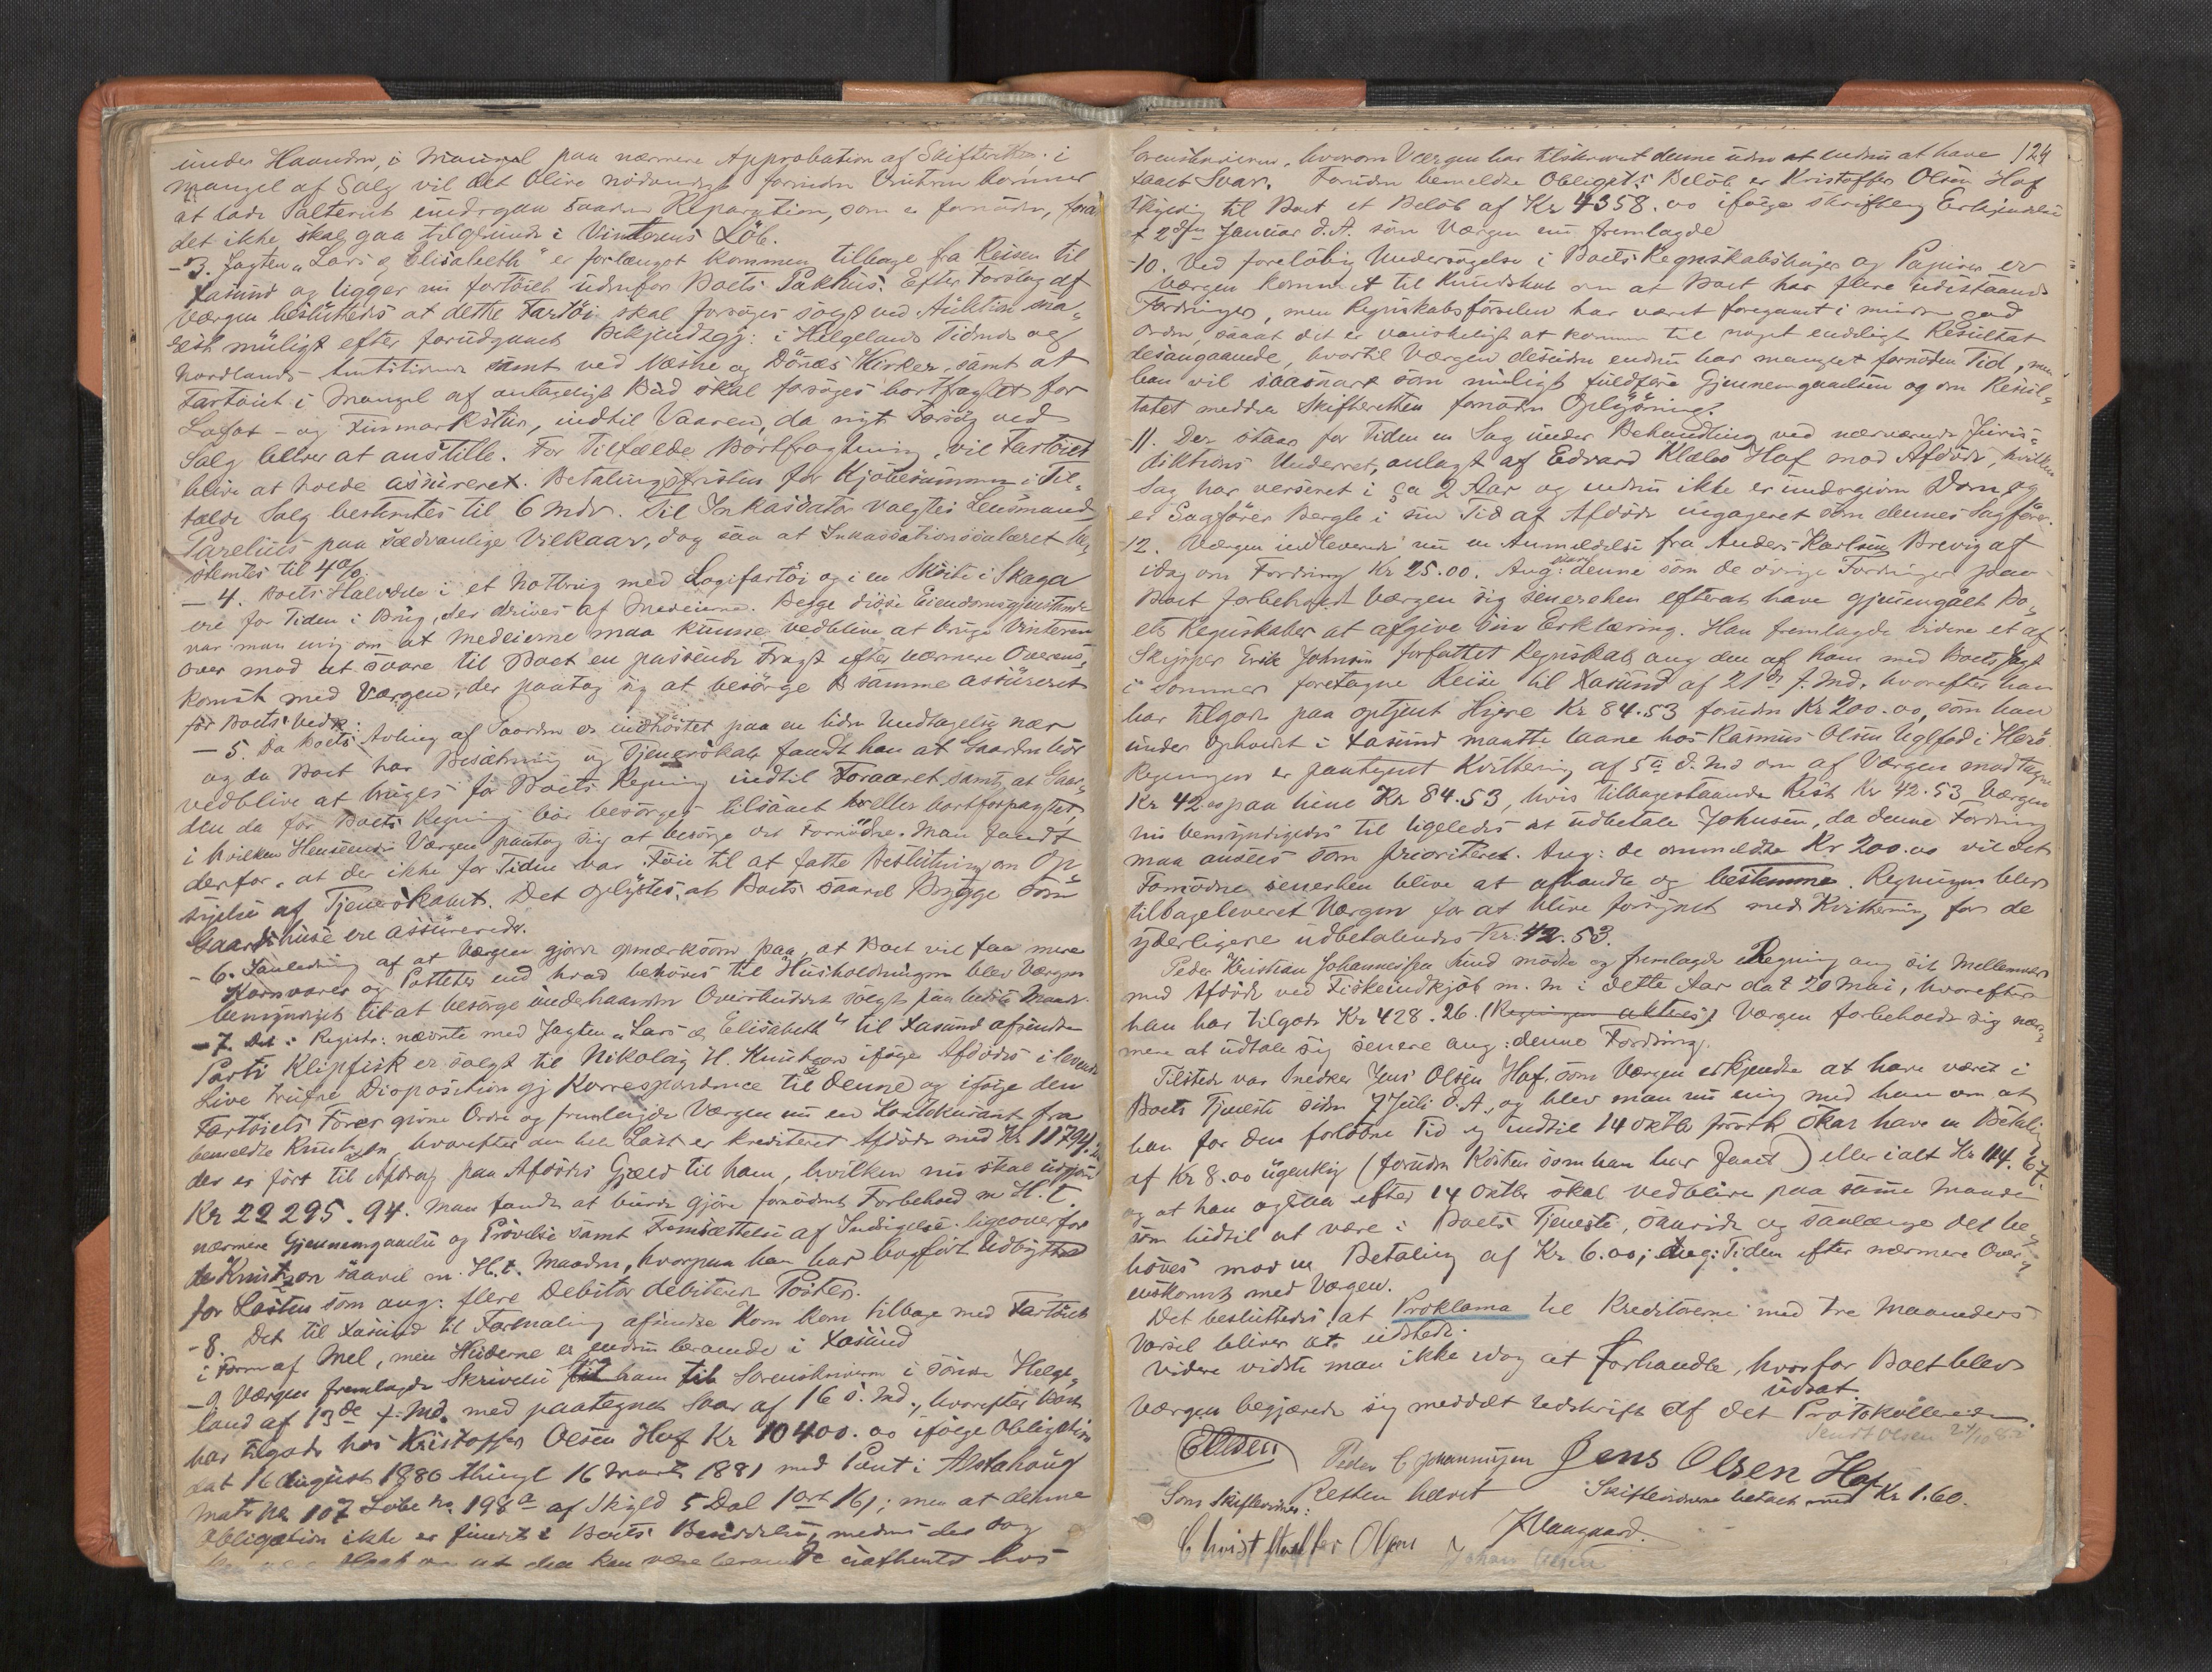 under Haanden, i Mangel paa nærmere Approbation af Skifteretten. i
Mangel af Salg vil det blive nödvendigt forinden Vinteren kommer
at lade Saltern indergaa saadan Reparation, som er fornöden, forat
det ikke skal gaa tilgrunde i Vinterens Löb.
- 3. Jagten "Lars & Elisabeth" er forlængst kommen tilbage fra Reisen til
Xasund og ligger nu fortöiet udenfor Boets Pakhus. Efter Forslag af
Værgen besluttedes at dette Fartöi skal forsöges solgt ved Auktion sna-
rest muligt efter forudgaaet Bekjendtgj: i Helgelands Tidende og
Nordlands Amtstidende samt ved Næsne og Dönæs Kirker, samt at
Fartöiet i Mangel af antageligt Bud skal forsöges bortfragtet for
Lofot- og Finmarkstur, indtil Vaaren, da nyt Forsög ved
Salg bliver at anstille. For Tilfælde Bortfragtning, vil Fartöiet
blive at holde assureret. Betalingsfristen for Kjöbesummen i Til-
fælde Salg bestemtes til 6 Mdr. Til Inkassator valgtes Lensmand
Parelius paa sædvanlige Vilkaar, dog saa at Inkassationssalæret be-
stemtes til 4%.
- 4. Boets Halvdele i et Notbrug med Logifartöi og i en Sköite i Skaga
ere for Tiden i Brug, der drives af Medeierne. Begge disse Eiendomsgjenstande
var man enig om at Medeierne maa kunne vedblive at bruge Vinteren
over mod at svare til Boet en passende Fragt efter nærmere Overens-
komst med Værgen, der paatog sig at besörge samme assureret
for Boets Vedk:
- 5. Da Boets Avling af Gaarden er indhöstet paa en liden Undtagelse nær
og da Boet har Besætning og Tjenerskab fandt han at Gaarden bör
vedblive at bruges for Boets Regning indtil Foraaret, samt, at Gaar-
den da for Boets Regning bör besörges tilsaaet eller bortforpagtet,
i hvilken Henseende Værgen paatog sig at besörge det Fornödne. Man fandt
derfor, at der ikke for Tiden var Föie til at fatte Beslutning om Op-
sigelse af Tjenerskabet. Det oplystes, at Boets saavel Brygge som
Gaardshuse ere assurerede.
- 6. I Anledning af at Værgen gjorde opmærksom paa, at Boet vil faa mere
Kornvarer og Poteter end hvad behöves til Husholdningen blev Værgen
bemyndiget til at besörge underhaanden Overskuddet solgt paa bedste Maade.
- 7. Det i Registr: nævnte med Jagten "Lars & Elisabeth" til Xasund afsendte
Parti Klipfisk er solgt til Nikolay H. Knudtzon ifölge Afdödes i levende
Live trufne Disposition gj Korrespondence til denne og ifölge den
Fartöiets Förer givne Ordre og fremlagde Værgen nu en Kontokurant fra
bemeldte Knudtzon hvorefter den hele Last er krediteret Afdöde med Kr 11794.
der er fört til Afdrag paa Afdödes Gjæld til ham, hvilken nu skal udgjöre
Kr 22295.94. Man fandt at burde gjöre fornödent Forbehold m. H. t.
nærmere Gjennemgaaelse og Prövelse samt Fremsættelse af Indsigelse ligeoverfor
de Knudtzon saavel m. H. t. Maaden, hvorpaa han har bogfört Udbyttet
for Lasten som ang: flere Debitor debiterede Poster.
- 8. Det til Xasund til Formaling afsendte Korn kom tilbage med Fartöiet
i Form af Mel, men Huderne er endnu beroende i Xasund
- 9. Værgen fremlagde Skrivelse fra ham til Sorenskriveren i söndre Helge-
land af 13de f. Md. med paategnet Svar af 16 s. Md., hvorefter Boet
har tilgode hos Kristoffer Olsen Hof Kr 10400.00 ifölge Obligation
dat 16 August 1880 thingl 16 Marts 1881 med Pant i Alstahoug
Mats No 107 Löbe No. 198a af Skyld 5 Dal 1 ort 16/; men at denne
Obligation ikke er fundet i Boets Besiddelse, medens der dog
kan være Haab om at den kan være beroende uafhentet hos
124
Sorenskriveren, hvorom Værgen har tilskrevet denne uden at endnu at have
faaet Svar. Foruden bemeldte Obligat:s Belöb er Kristoffer Olsen Hof
skyldig til Boet et Belöb af Kr 4358.00 ifölge skriftlig Erkjendelse
af 2den Januar d.A. som Værgen nu fremlagde
- 10. Ved forelöbig Undersögelse i Boets Regnskabsböger og Papirer er
Værgen kommet til Kundskab om at Boet har flere udestaaende
Fordringer, men Regnskabsförselen har været foregaaet i mindre god
Orden, saaat det er vanskeligt at komme til noget endeligt Resultat
desangaaende, hvortil Værgen desuden endnu har manglet fornöden Tid, men
han vil saasnart som muligt fuldföre Gjennemgaaelsen og om Resul-
tatet meddele Skifteretten fornöden Oplysning.
- 11. Der staar for Tiden en Sag under Behandling ved nærværende Juris-
diktions Underret, anlagt af Edvard Klæbo Hof mod Afdöde, hvilken
Sag har verseret i ca 2 Aar og endnu ikke er undergiven Dom og
er Sagförer Bergh i sin Tid af Afdöde engageret som dennes Sagförer.
12. Værgen indleverede nu en Anmeldelse fra Anders Karlsen Brevig af
idag om Fordring Kr 25.00. Ang: denne som de övrige Fordringer paa
Boet forbeholdt Værgen sig senerehen efterat have gjennemgaaet Bo-
ets Regnskaber at afgive sin Erklæring. Han fremlagde videre et af
Skipper Erik Johnsen forfattet Regnskab ang den af ham med Boets Jagt
i Sommer foretagne Reise til Xasund af 21de f. Md. hvorefter han
har tilgode paa optjent Hyre Kr 84.53 foruden Kr 200.00, som han
under Opholdet i Xasund maatte laane hos Rasmus Olsen Ugsfod i Herö.
Regningen er paategnet Kvittering af 5te d. Md om af Værgen modtagne
Kr 42.00 paa hine Kr 84.53, hvis tilbagestaaende Rest Kr 42.53 Værgen
nu bemyndigedes til ligeledes at udbetale Johnsen, da denne Fordring
maa ansees som prioriteret. Ang: de anmeldte Kr 200.00 vil det
Fornödne senerhen blive at afhandle og bestemme. Regningen blev
tilbageleveret Værgen for at blive forsynet med Kvittering for de
yderligere udbetalendes Kr. 42.53.
Peder Kristian Johannessen Sund mödte og fremlagde Regning ang sit Mellemvær
med Afdöde ved Fiskeindkjöb m. m i dette Aar dat 20 Mai, hvorefter
han har tilgode Kr 428.26. (Regningen aktes) Værgen forbeholdt sig nær-
mere at udtale sig senere ang: denne Fordring.
Tilstede var Snedker Jens Olsen Hof, som Værgen erkjendte at have været i
Boets Tjeneste siden 7 Juli d. A., og blev man nu enig med ham om at
han for den forlöbne Tid og indtil 14 Oktbr förstk skal have en Betaling
af Kr 8.00 ugentlig (foruden Kosten som han har faaet) eller ialt Kr 114.67.
og at han ogsaa efter 14 Oktbr skal vedblive paa samme Maade
som hidtil at være i Boets Tjeneste, saavidt og saalænge det be-
höves mod en Betaling af Kr. 6.00; ang: Tiden efter nærmere Over-
enskomst med Værgen.
Det besluttedes at Proklama til Kreditorerne med tre Maaneders
Varsel bliver at udstede.
Videre vidste man ikke idag at forhandle, hvorfor Boet blev
udsat.
Værgen begjærede sig meddelt Udskrift af det Protokollerede.
Sendt Olsen 21/10 82
EOlsen Peder C Johannesen Jens Olsen Hof
Retten hævet Skiftevidnerne betalt med Kr 1.60.
Som Skiftevidner:
Christoffer Olsen Johan Olsen